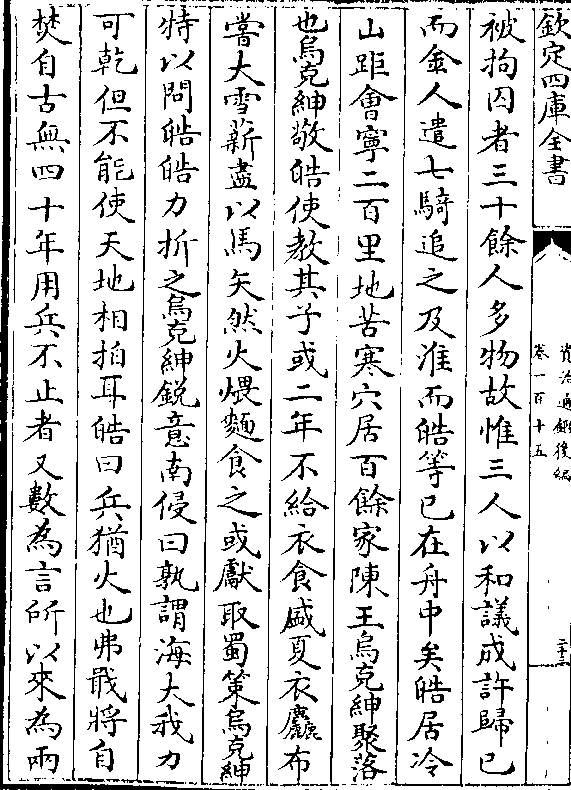 欽定四庫全書
資治通鑑後編
卷一百十五
二十三
被拘囚者三十餘人多物故惟三人以和議成許歸已
而金人遣七騎追之及淮而皓等已在舟中矣皓居冷
山距㑹寧二百里地苦寒穴居百餘家陳王烏克紳聚落
也烏克紳敬皓使教其子或二年不給衣食盛夏衣麤布
嘗大雪薪盡以馬矢然火煨麵食之或獻取蜀策烏克紳
持以問皓皓力折之烏克紳鋭意南侵曰孰謂海大我力
可乾但不能使天地相拍耳皓曰兵猶火也弗戢將自
焚自古無四十年用兵不止者又數為言所以來為兩